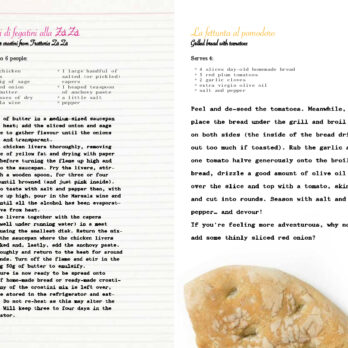 i di fegatini alla ZaZa
crostini from Trattoria ZaZa
to 6 people:
chicken
sprig of sage
onion
butter
capers
wine
* 1 large handful of
salted (or pickled)
capers
* 1 heaped teaspoon
of anchovy paste
* a little salt
* pepper
of butter in a medium-sized saucepan
heat; add the sliced onion and sage
to gather flavour until the onions
and transparent.
chicken livers thoroughly, removing
of yellow fat and drying with paper
before turning the flame up high and
to the saucepan. Fry the livers, stir-
a wooden spoon, for three or four
until browned (and just pink inside).
to taste with salt and pepper then, with
up high, pour in the Marsala wine and
until all the alcohol has been evaporat-
from heat.
livers together with the capers
well under running water) in a meat
using the smallest disk. Return the mix-
the saucepan where the chicken livers
and, lastly, add the anchovy paste.
roughly and return to the heat for around
Turn off the flame and stir in the
50g of butter to emulsify.
is now ready to be spread onto
of home-made bread or ready-made crosti-
of the crostini mix is left over,
stored in the refrigerator and eat-
Do not re-heat as this may alter the
Will keep three to four days in the
La fettunta al pomodoro
Grilled bread with tomatoes
Serves 4:
* 4 slices day-old homemade bread
* 5 red plum tomatoes
* 2 garlic cloves
* extra virgin olive oil
* salt and pepper
Peel and de-seed the tomatoes. Meanwhile,
place the bread under the grill and broil
on both sides (the inside of the bread dri
out too much if toasted). Rub the garlic a
one tomato halve generously onto the broil
bread, drizzle a good amount of olive oil
over the slice and top with a tomato, skin
and cut into rounds. Season with salt and
pepper… and devour!
If you're feeling more adventurous, why no
add some thinly sliced red onion?